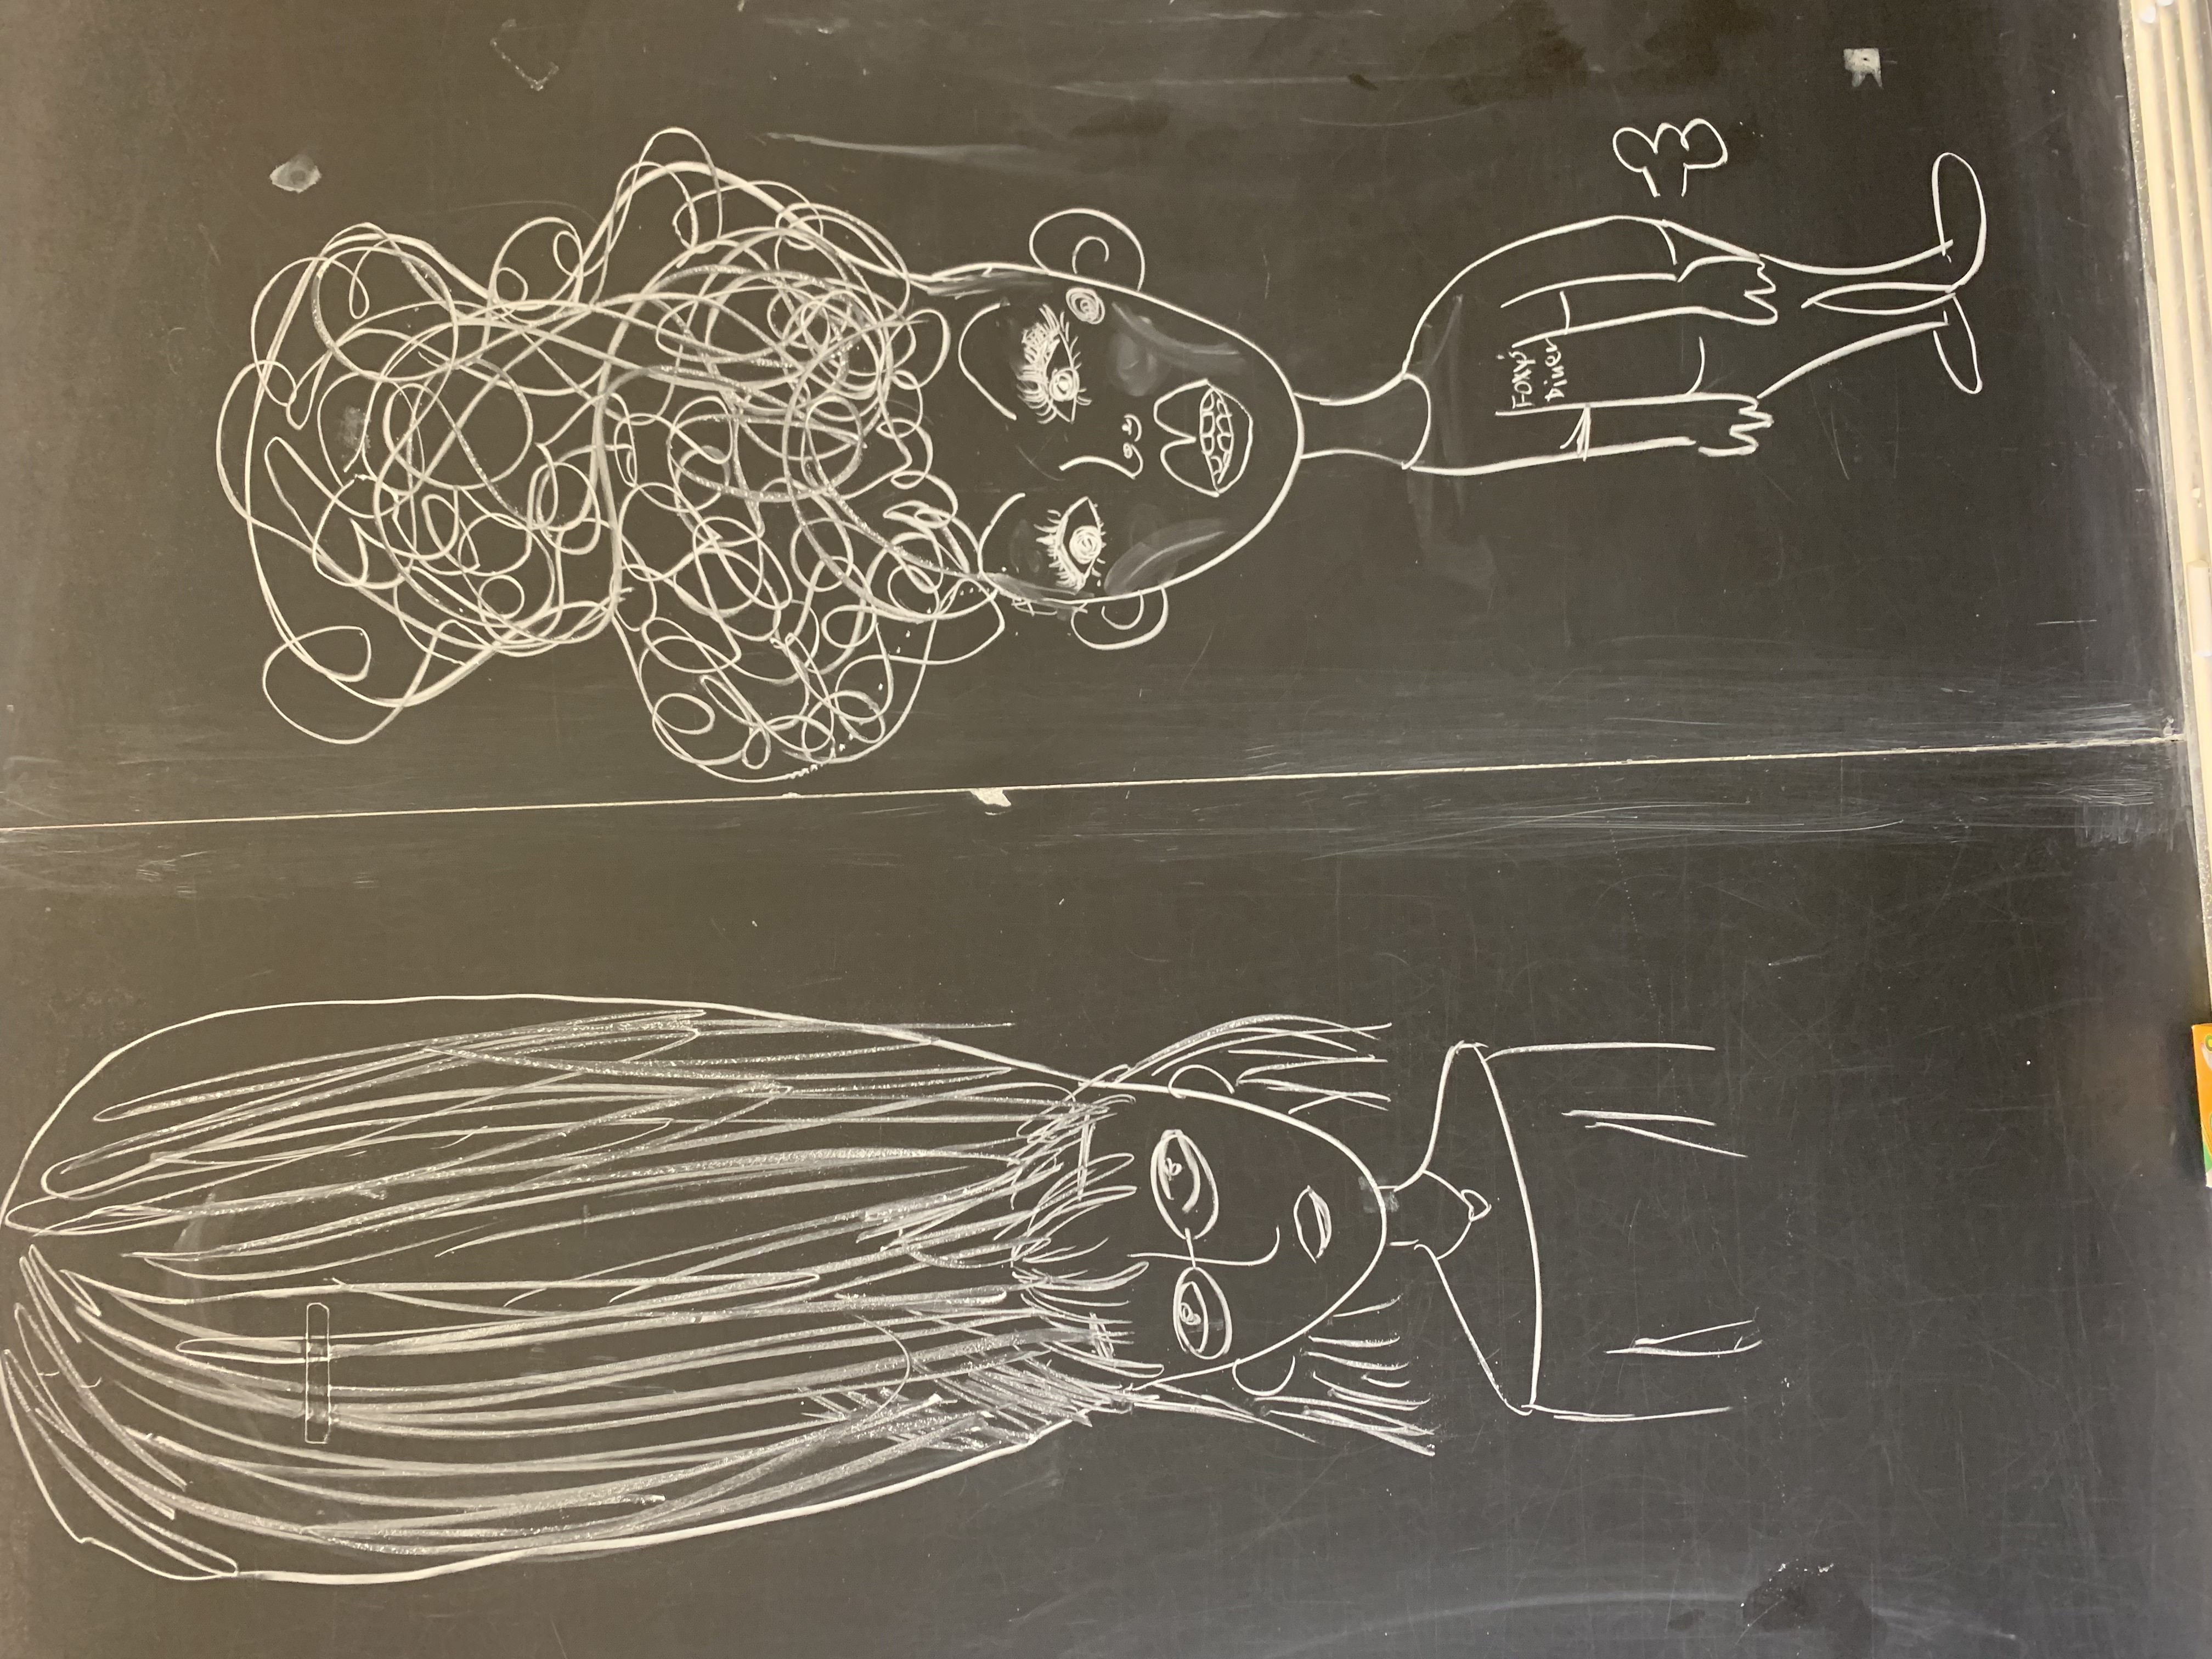 Foxy's
Diner